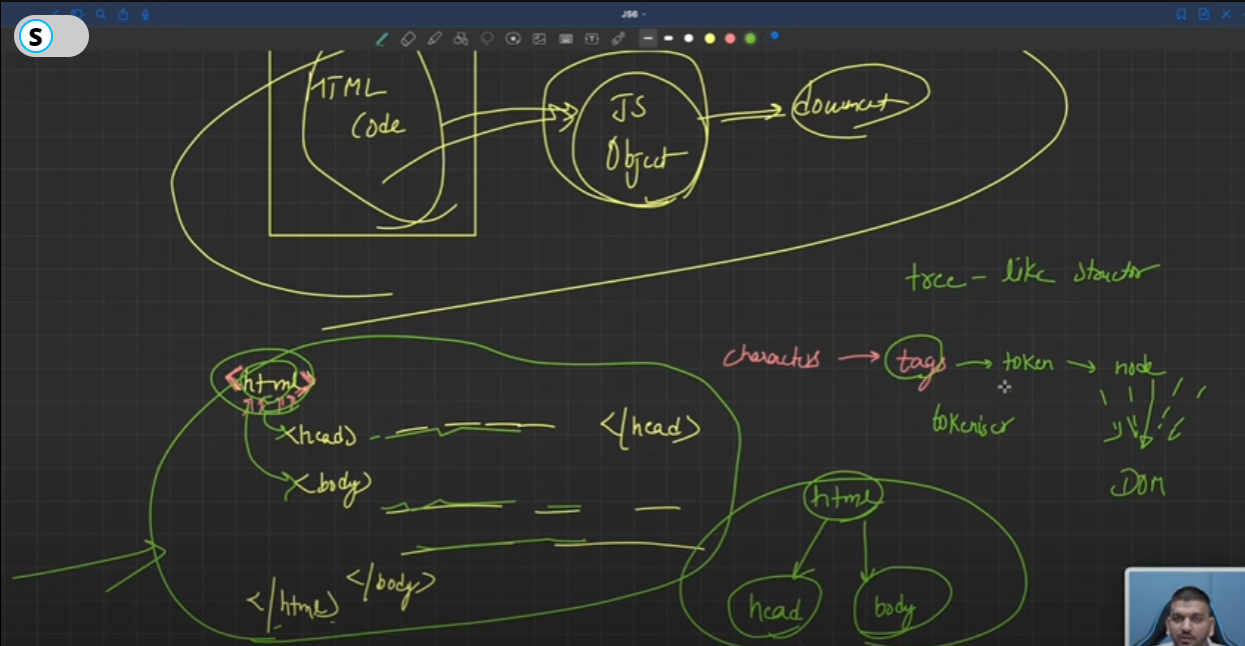 JS6
S
HTML
Code
JS
Object
document
tree - like structor
characters → tags → token → node
tokeniser
DOM
<html>
<head>
</head>
<body>
</body>
</html>
html
head
body